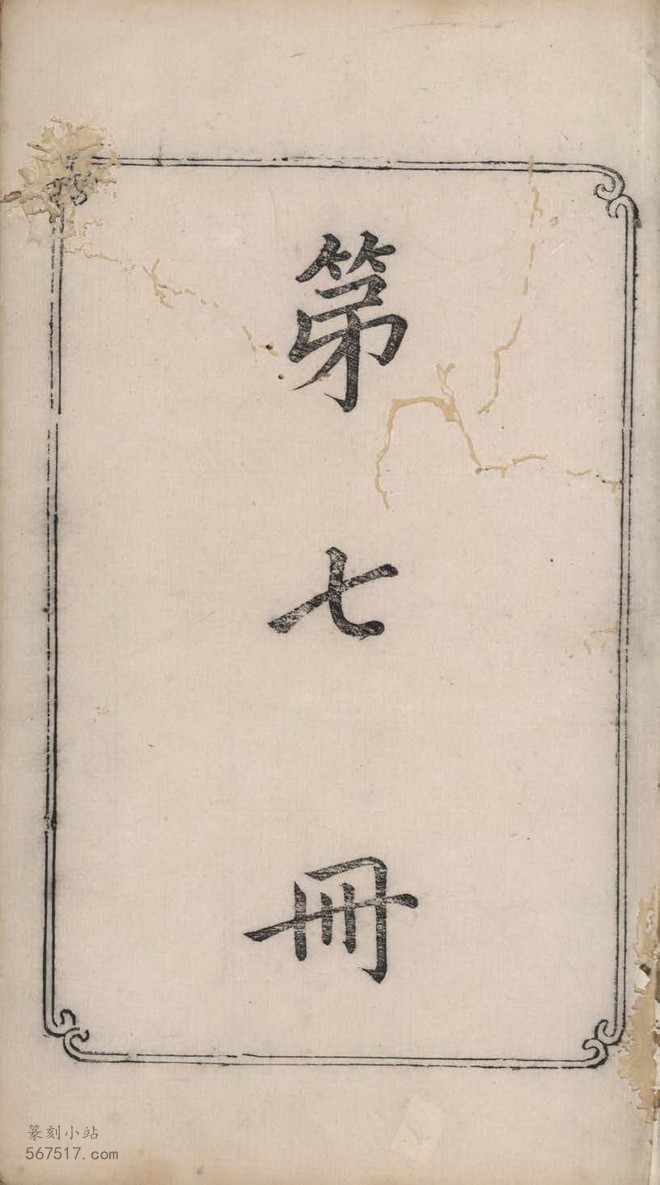 第七冊
篆刻小站
567517.com